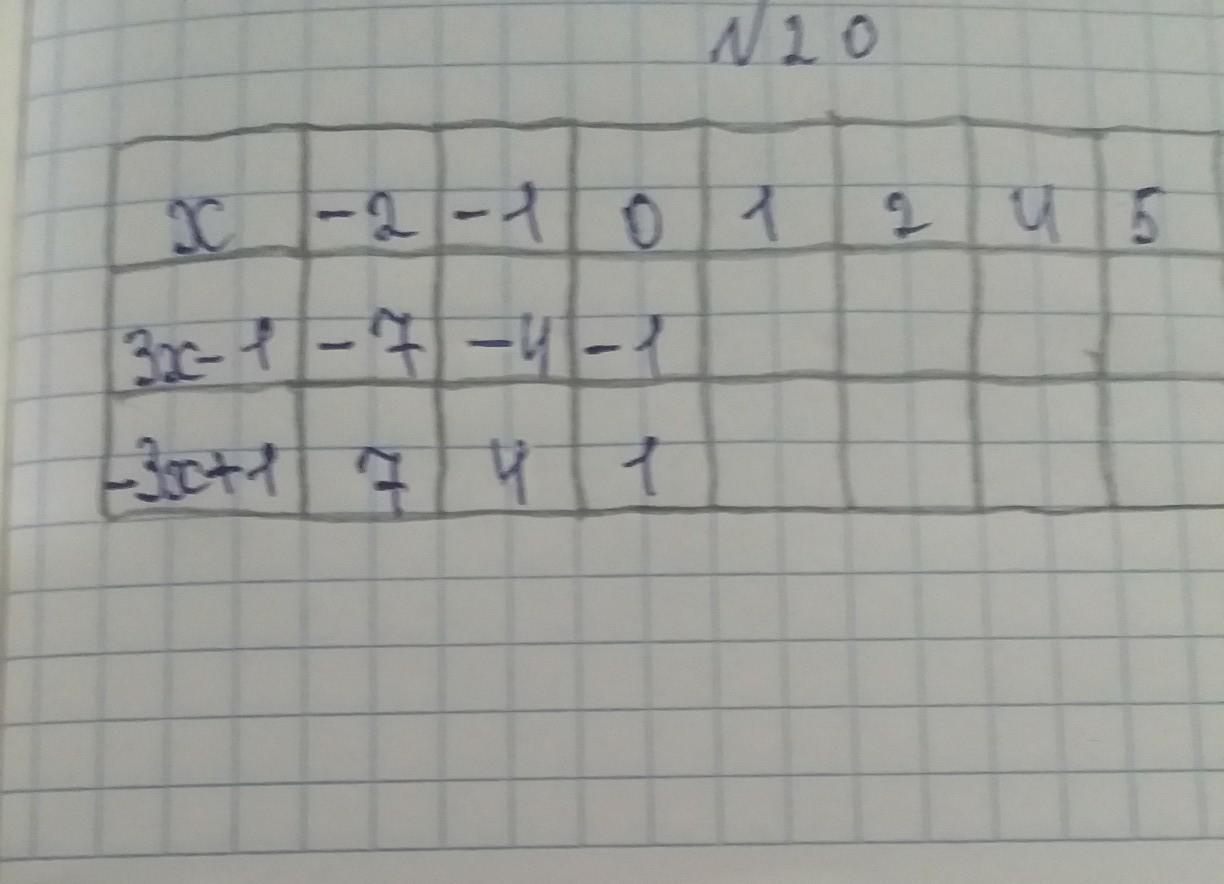 N20
x -2 -1 0 1 2 4 5
3x-1 -7 -4 -1
-3x+1 7 4 1